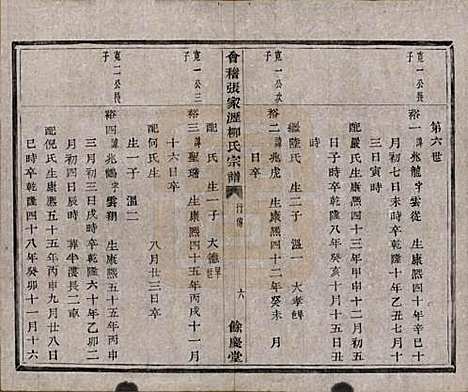 第六世
寬一公長子
裕一 諱兆龍字雲從 生康熙四十年辛巳十
月初七日未時卒乾隆六十年乙丑七月十
三日寅時
配嚴氏生康熙四十三年甲申十二月初五
日 時卒乾隆八年癸亥十月三日
繼陸氏 生一子 溫一 大孝
寬一公次子
裕二 諱兆虎 生康熙四十二年癸未 月
日卒
配 氏 生一子 大德
寬一公三子
裕三 諱聖瑞 生康熙四十五年丙戌十一月
十六日卒
配何氏生 八月廿三日卒
生一子 溫二
寬二公長子
裕四 諱兆鶴字雲翔 生康熙五十五年丙申
三月初三日戌時卒乾隆六十年乙卯二
月初四日辰時 葬半漊長二畝
配倪氏生康熙五十五年丙申九月廿八日
巳時卒乾隆四十八年癸卯十一月十六
會稽張家瀝柳氏宗譜
行傳
六
餘慶堂